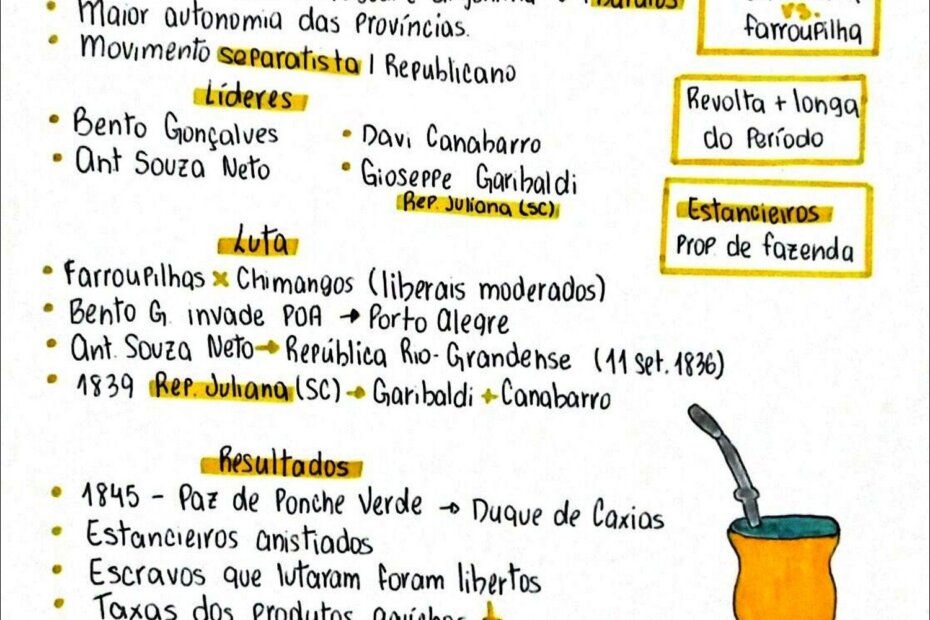 • Maior autonomia das Províncias.
• Movimento separatista | Republicano
Líderes
• Bento Gonçalves
• Ant Souza Neto
• Davi Canabarro
• Gioseppe Garibaldi
Rep. Juliana (SC)
Luta
• Farroupilhas x Chimangos (liberais moderados)
• Bento G. invade POA → Porto Alegre
• Ant. Souza Neto → República Rio-Grandense (11 set. 1836)
• 1839 Rep. Juliana (SC) → Garibaldi + Canabarro
Resultados
• 1845 - Paz de Ponche Verde → Duque de Caxias
• Estancieiros anistiados
• Escravos que lutaram foram libertos
• Taxas dos produtos
vs.
farroupilha
Revolta + longa
do Período
Estancieiros
Prop. de fazenda